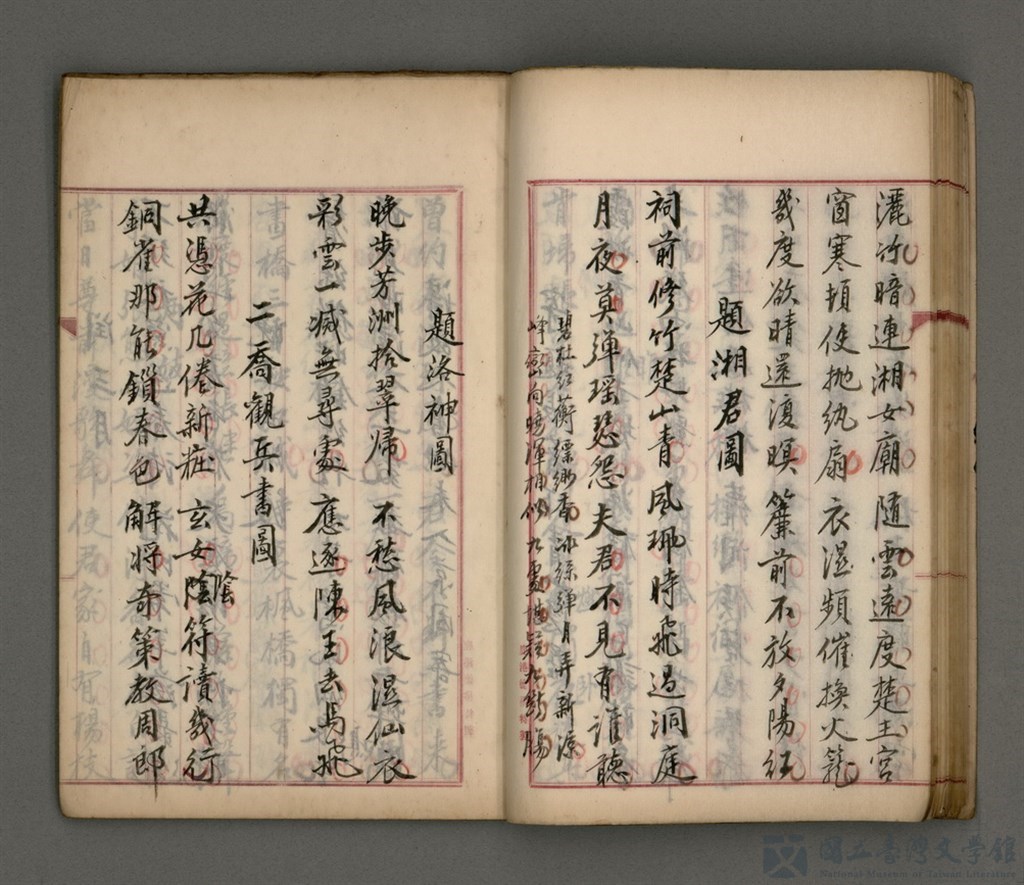 灑竹暗連湘女廟隨雲遠度楚王宮
窗寒頓使抛紈扇衣濕頻催換火籠
幾度欲晴還復暝簾前不放夕陽紅
題湘君圖
祠前修竹楚山青風珮時飛過洞庭
月夜莫彈瑶瑟怨夫君不見有誰聽
碧杜紅蘅縹緲香冰絲彈月弄新涼
峰巒向曉渾相似九處堪疑九斷腸
題洛神圖
晚步芳洲拾翠歸不愁風浪濕仙衣
彩雲一滅無尋處應逐陳王去馬飛
二喬觀兵書圖
共憑花几倦新粧玄女陰符讀幾行
陰
銅雀那能鎖春色解將奇策教周郎
國立臺灣文學館
National Museum of Taiwan Literature